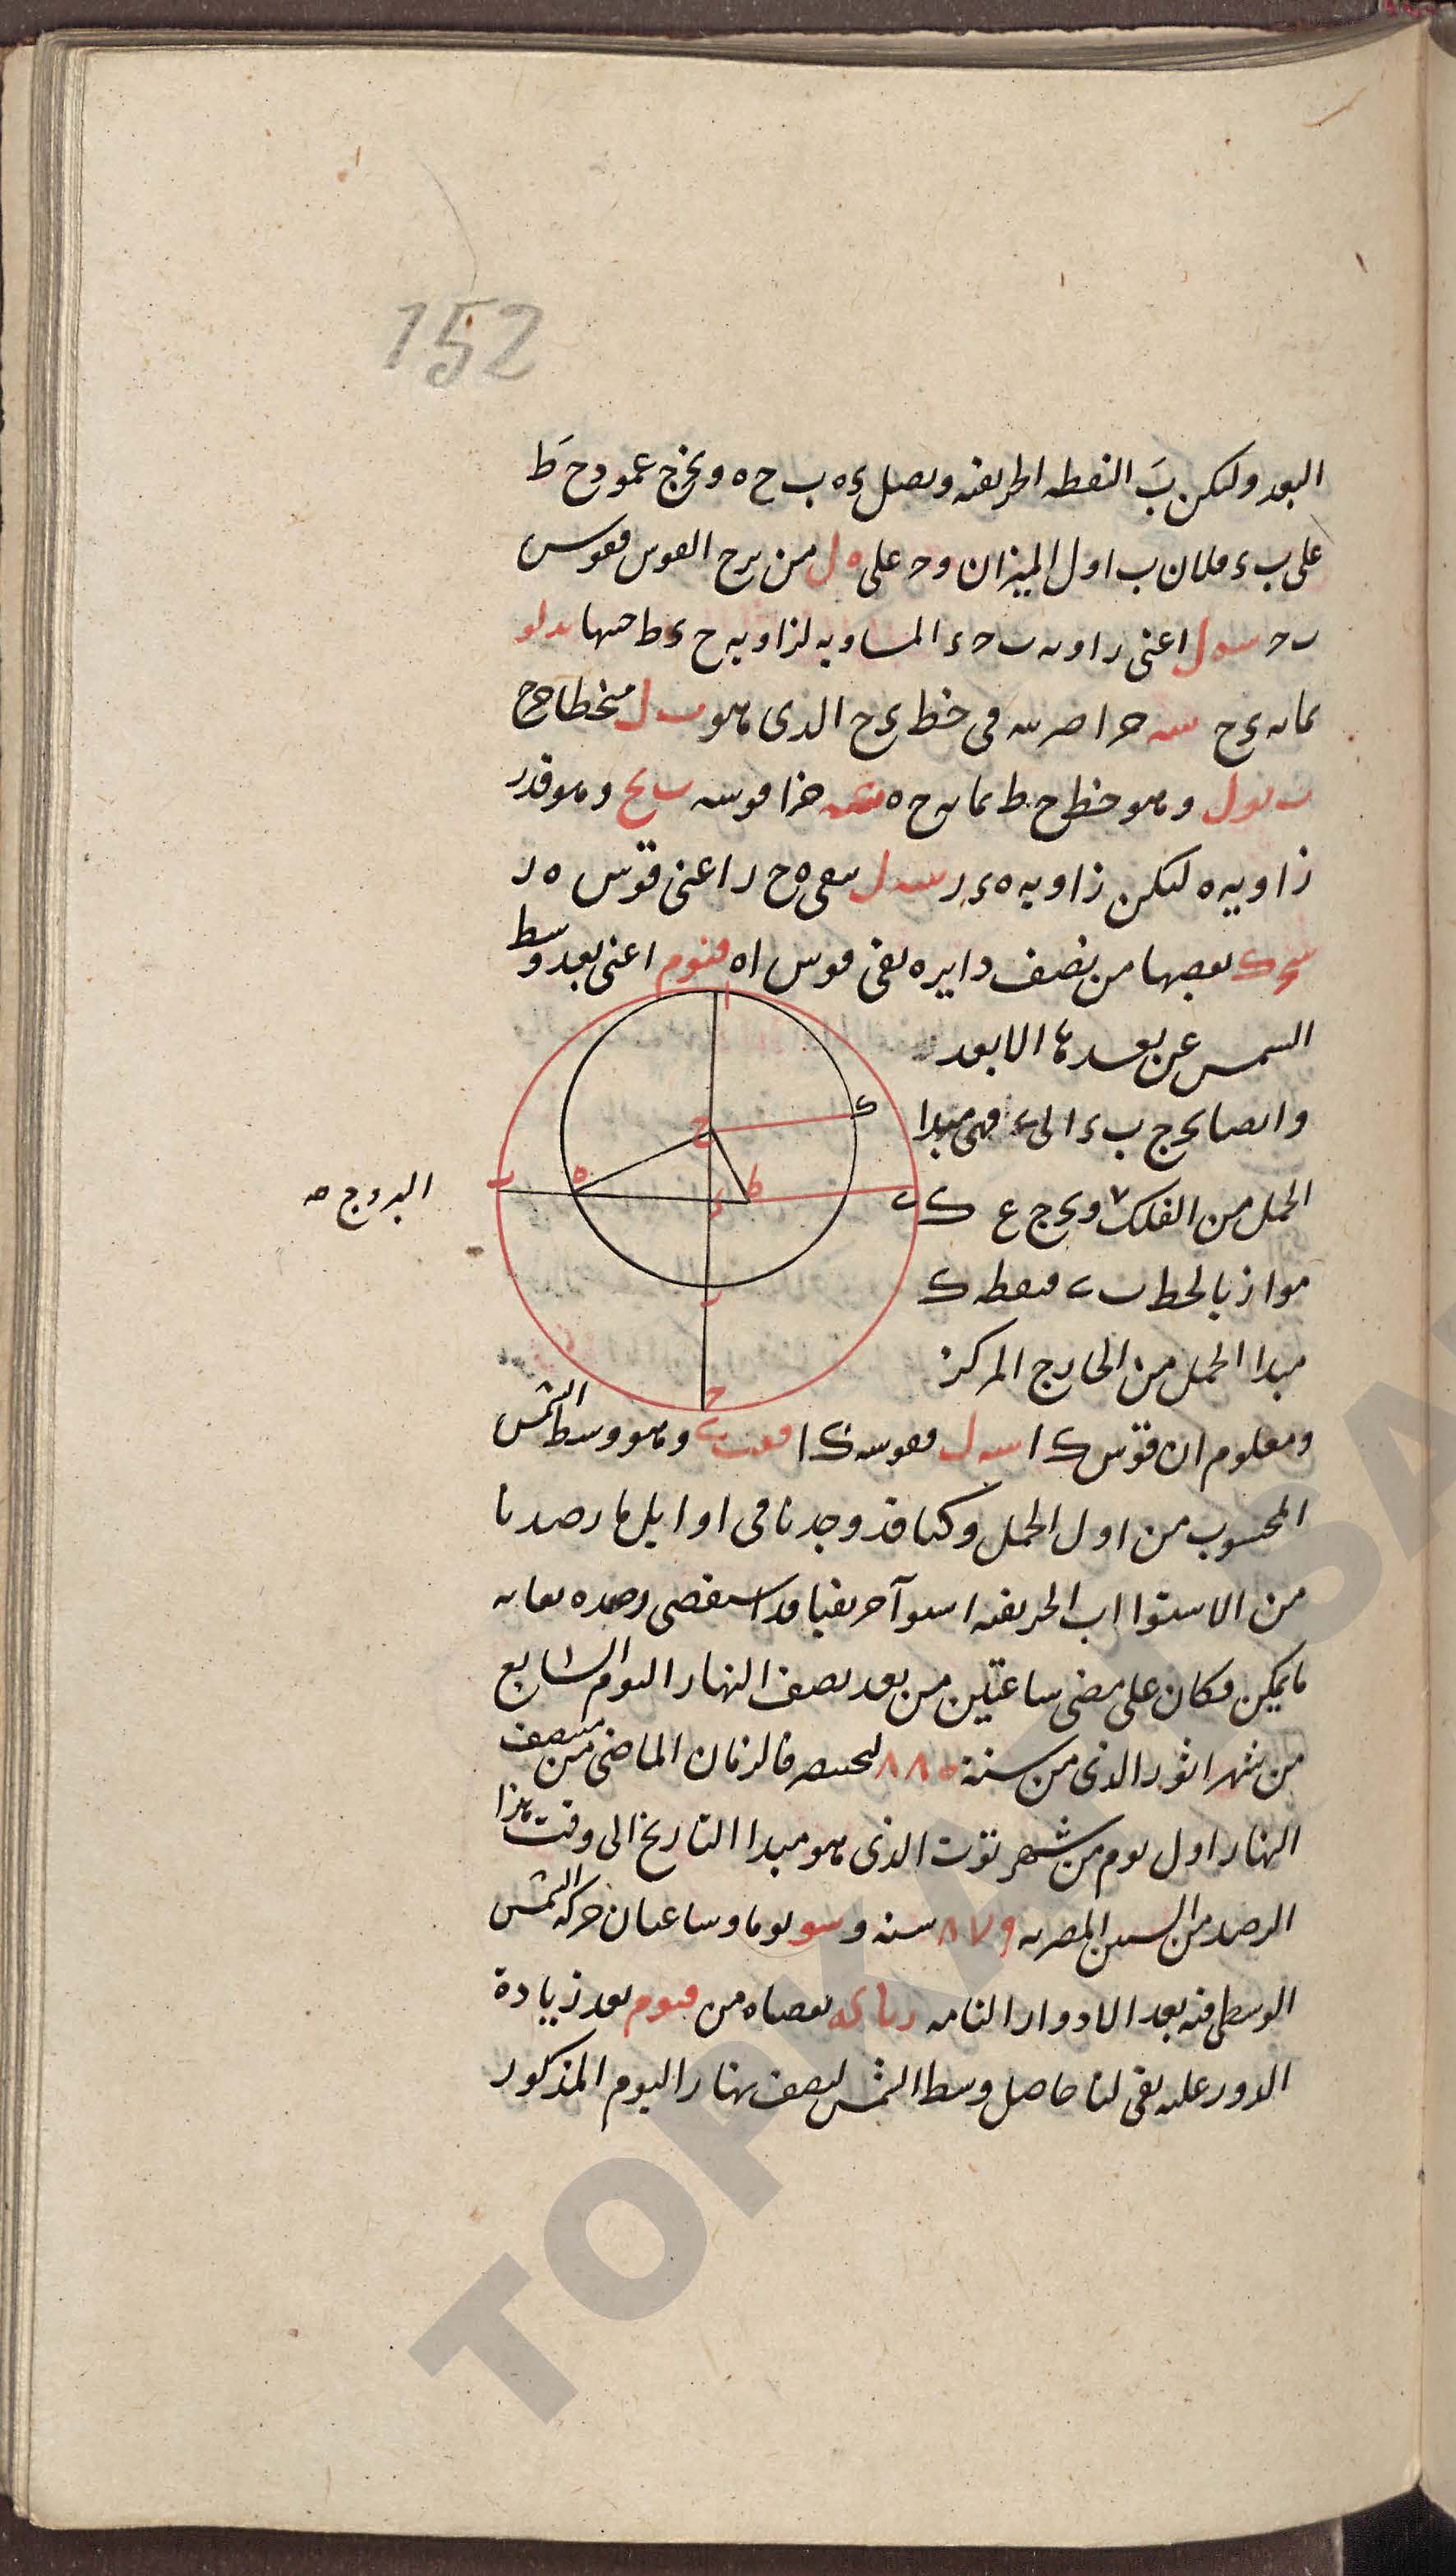 152
البعد ولتكن بَ النقطه الخريفيه ونصل ءه ب ح ه ونخرج عمود ح ط
على ب ء فلان ب اول الميزان وح على ه ل من برج القوس فقوس
ب ح سه ل اعنى زاويه ب ح ء المساويه لزاويه ح ء ط جيبها
ء ح سه جزا ضربه فى خط ء ح الذى هو ب ل منحطا خرج
وهو خط ح ط بمابه ح ه جزا قوسه وهو قدر
زاويه ه لكن زاويه ه ء ر سه ل يبقى ه ح ر اعنى قوس ه ر
نقصها من نصف دايره بقى قوس اه اعنى بعد وسط
الشمس عن بعدها الابعد
وايضا نخرج ب ء الى ء فهى مبدا
الحمل من الفلك ونخرج ع ك
البروج
موازيا لخط ب ء فنقطه ك
مبدا الحمل من الخارج المركز
ومعلوم ان قوس ك ا سه ل فقوس ك ا وهو وسط الشمس
المحسوب من اول الحمل وكنا قد وجدنا فى اوايل ما رصدنا
من الاستواات الخريفيه استوآ خريفيا قد استقصى رصده بغايه
ما يمكن فكان على مضى ساعتين من بعد نصف النهار اليوم السابع
من شهر اثور الذى من سنة ٨٨٥ لبختنصر فالزمان الماضى من منتصف
النهار اول يوم من شهر توت الذى هو مبدا التاريخ الى وقت هذا
الرصد من السنين المصريه ٨٧٩ سنه و سو يوما وساعتان حركة الشمس
الوسطى فيه بعد الادوار التامه ريا كه نقصناه من بعد زيادة
الدور عليه بقى لنا حاصل وسط الشمس لنصف نهار اليوم المذكور
ا
ح
ك
ه
ط
ء
ب
ر
ح
TOPKAPI SA